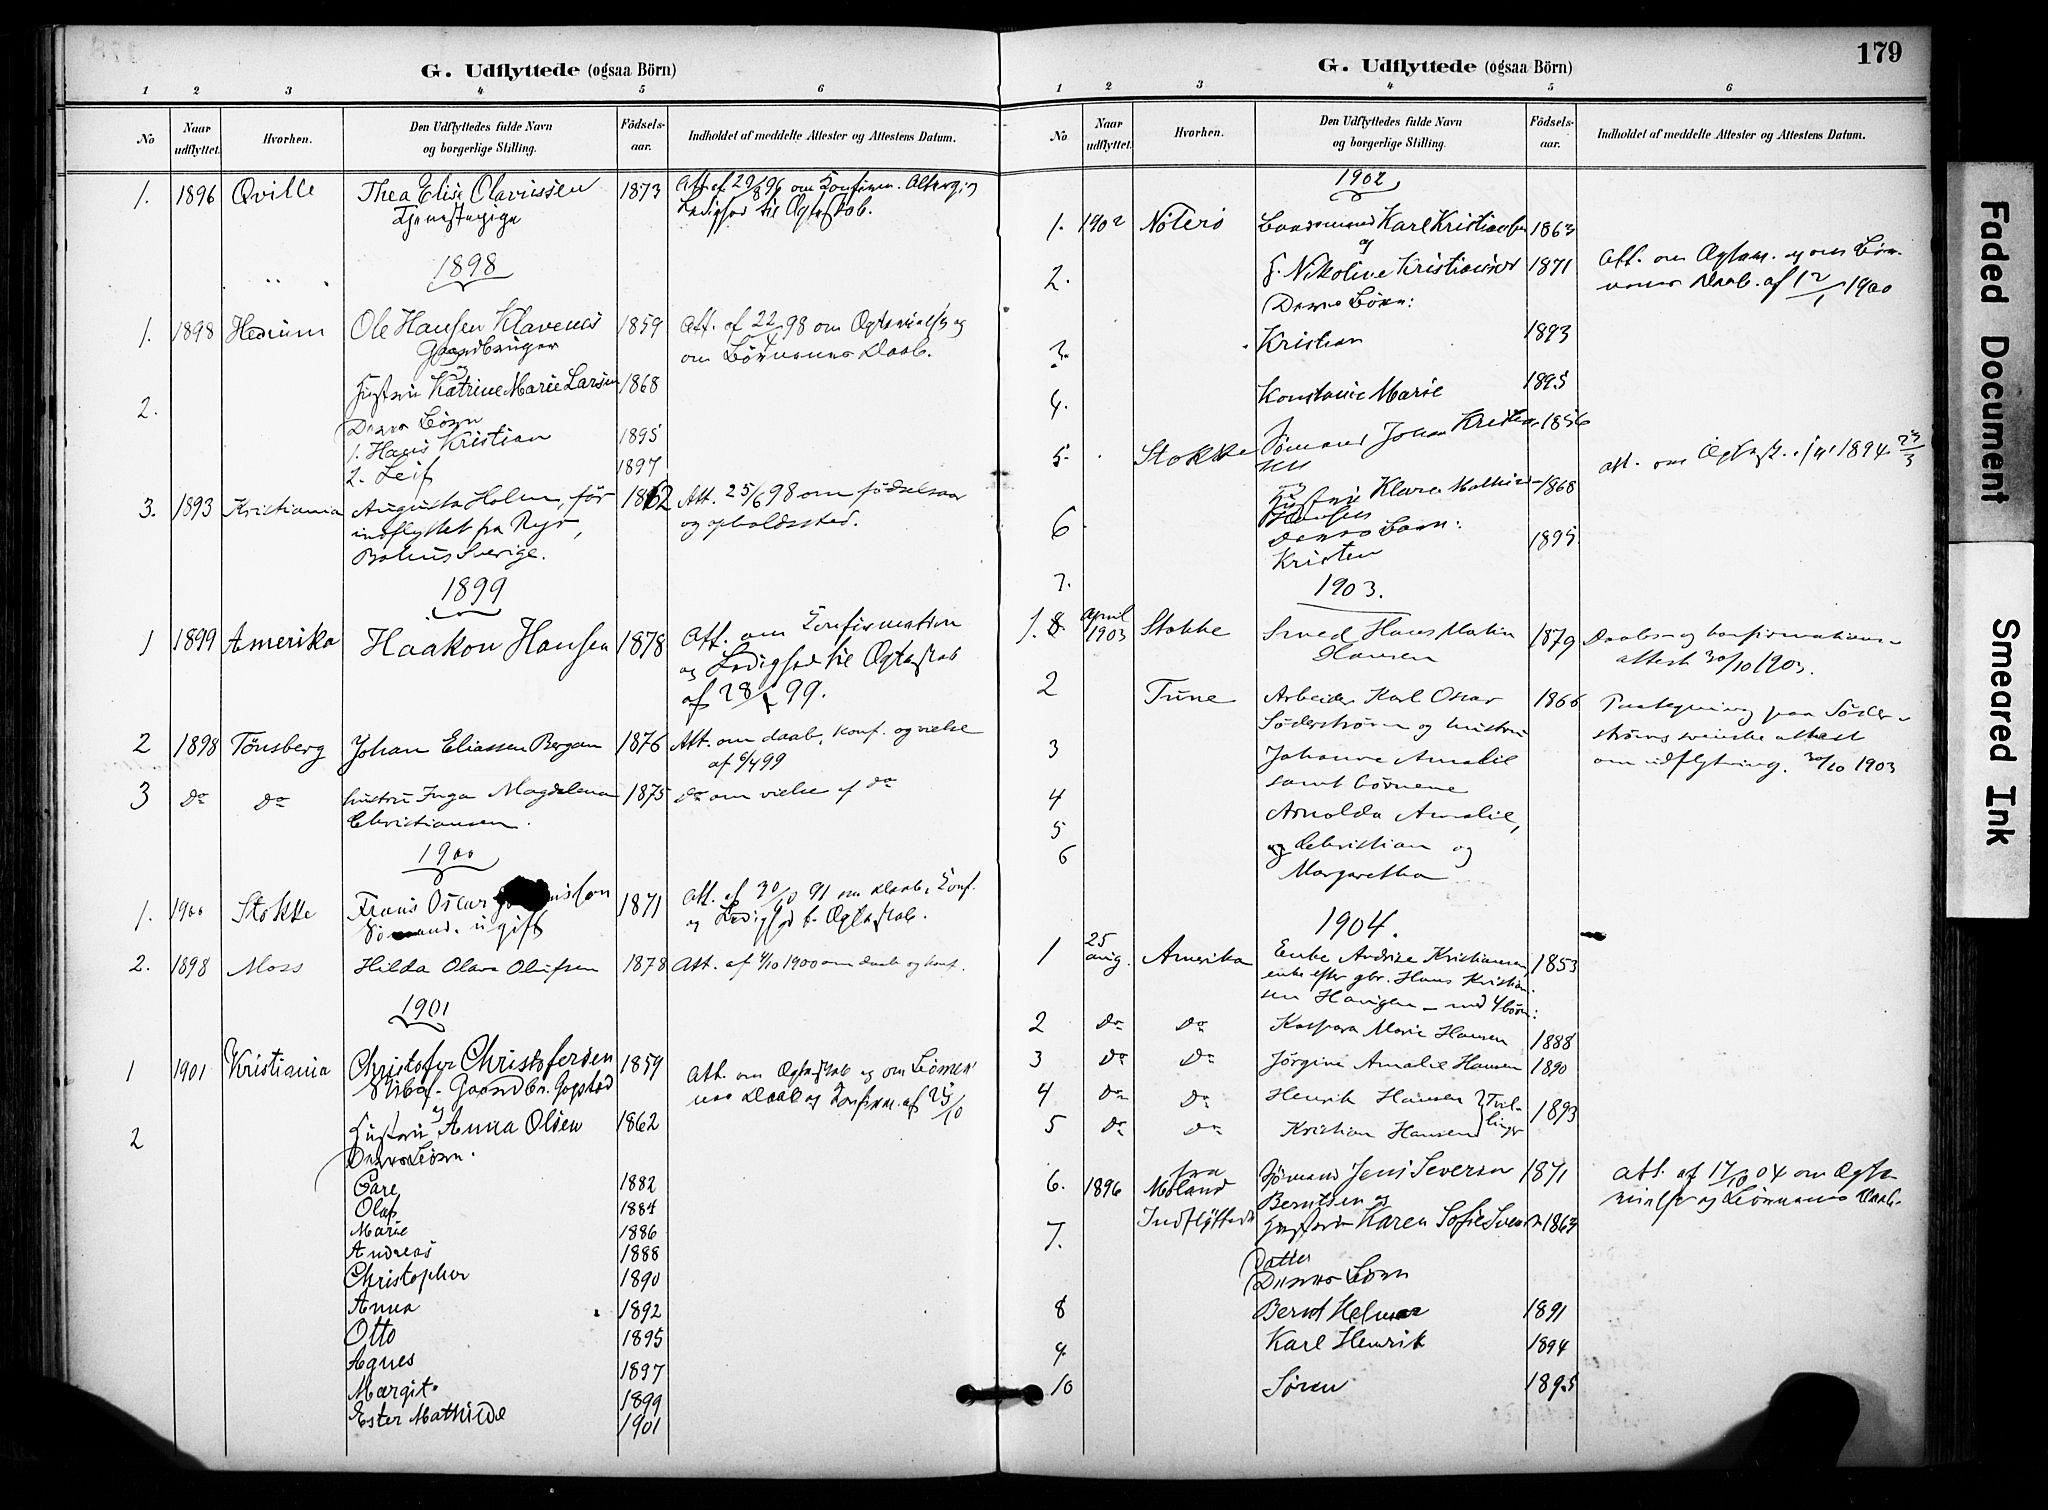 G. Udflyttede (ogsaa Börn)
1 2 3 4 5 6
No
Naar udflyttet.
Hvorhen.
Den Udflyttedes fulde Navn og borgerlige Stilling.
Födsels-aar.
Indholdet af meddelte Attester og Attestens Datum.
1. 1896 Qville Thea Elise Olavissen 1873 Att. af 29/8 96 om Konfirm. Altergg.
Tjenestepige Ledighed til Ægteskab.
1898
1. 1898 Hedrum Ole Hansen Klavenes 1859 Att. af 22/4 98 om Ægtevielse og
Gaardbruger om Børnenes Daab.
og
2. Hustru Katrine Marie Larsen 1868
Deres Børn
1. Hans Kristian 1895
2. Leif 1897
3. 1893 Kristiania Augusta Holm, før 1862 Att. 25/6 98 om fødselsaar
indflyttet fra Ryr, og opholdssted.
Bohus Sverige.
1899
1 1899 Amerika Haakon Hansen 1878 Att. om Konfirmation
og Ledighed til Ægteskab
af 28/ 99.
2 1898 Tönsberg Johan Eliassen Bergan 1876 Att. om daab, konf. og vielse
af 6/4 99
3 Do Do hustru Inga Magdalena 1875 Do om vielse af Do
Christiansen.
1900
1. 1900 Stokke Frans Oscar 1871 Att. af 30/10 91 om Daab, Konf.
Sømand. ugift og Ledighed t. Ægteskab.
2. 1898 Moss Hilda Olava Olufsen 1878 Att. af 4/10 1900 om daab og konf.
1901
1 1901 Kristiania Christofer Christofersen 1859 Att. om Ægteskab og om Børne-
Skibsf. Gaardbr. Gogstad nes Daab og Konfirm. af 25/10
og
2 Hustru Anna Olsen 1862
Deres Børn.
1882
Olaf 1884
Marie 1886
Andreas 1888
Christopher 1890
Anna 1892
Otto 1895
Agnes 1897
Margit 1899
Ester Mathilde 1901
179
G. Udflyttede (ogsaa Börn)
1 2 3 4 5 6
No
Naar udflyttet.
Hvorhen.
Den Udflyttedes fulde Navn og borgerlige Stilling.
Födsels-aar.
Indholdet af meddelte Attester og Attestens Datum.
1902
1. 1902 Nöterö Karl Kristiansen 1863
og
2. H. Nikoline Kristiansen 1871 Att. om Ægtesk. og om Bør-
Deres Børn: nenes Daab. af 12/1 1900
3. Kristian 1893
4. Konstanse Marie 1895
5. Stokke Sømand Johan Kristian- 1856
sen att. om Ægtesk. 1894 23/3
og
6 Hustru Klara Mathilde 1868
Hansen
Deres Barn:
7. Kristen 1895
1903.
1. 8. April 1903 Stokke Smed Hans Martin 1879 Daabs- og konfirmations-
Hansen attest 30/10 1903.
2 Tune Arbeider Karl Oscar 1866 Paategning paa Söder-
Söderström og hustru ströms svenske attest
3 Johanne Amalie om udflytning. 30/10 1903
samt börnene
4 Arnolda Amalie,
5 Christian og
6 Margaretha
1904.
1 25 aug. Amerika Enke Andrine Kristiansen, 1853
enke efter gbr. Hans Kristian-
sen Haugen – med 4 börn:
2 Do Do Kaspara Marie Hansen 1888
3 Do Do Jørgine Amalie Hansen 1890
4 Do Do Henrik Hansen } Tvil- 1893
5 Do Do Kristian Hansen linger
6. 1896 fra Moland Sømand Jens Severin 1871 Att. af 17/10 04 om Ægte-
Indflyttede Berntsen og vielse og Børnenes Daab.
7. Hustru Karen Sofie Svens- 1863
datter
Deres Børn
8 Bernt Helmer 1891
9. Karl Henrik 1894
10 Søren 1895
Faded Document
Smeared Ink